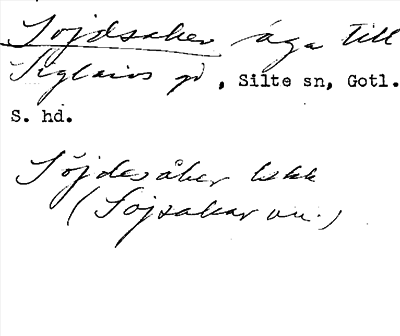 Sojdsaker äga till
Siglaivs gd, Silte sn, Gotl.
S. hd.
Söjdesåker lskk
(Sojsakar uu.)